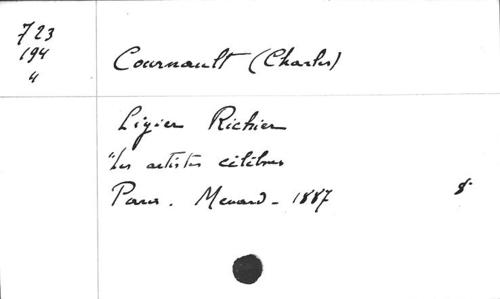 723
194
4
Cournault (Charles)
Ligier Richier
"Les artistes célèbres
Paris. Menard - 1887 8°